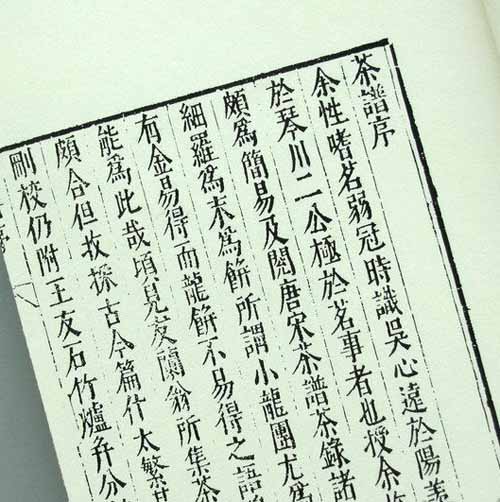 茶譜序
余性嗜茗弱冠時識吳心遠於陽羨
於琴川二公極於茗事者也授余
頗為簡易及閱唐宋茶譜茶錄諸
細羅為末為餅所謂小龍團尤為
有金易得而龍餅不易得之語
能為此哉頃見友蘭翁所集茶
頗合但收採古今篇什太繁甚
刪校仍附王友石竹爐并分